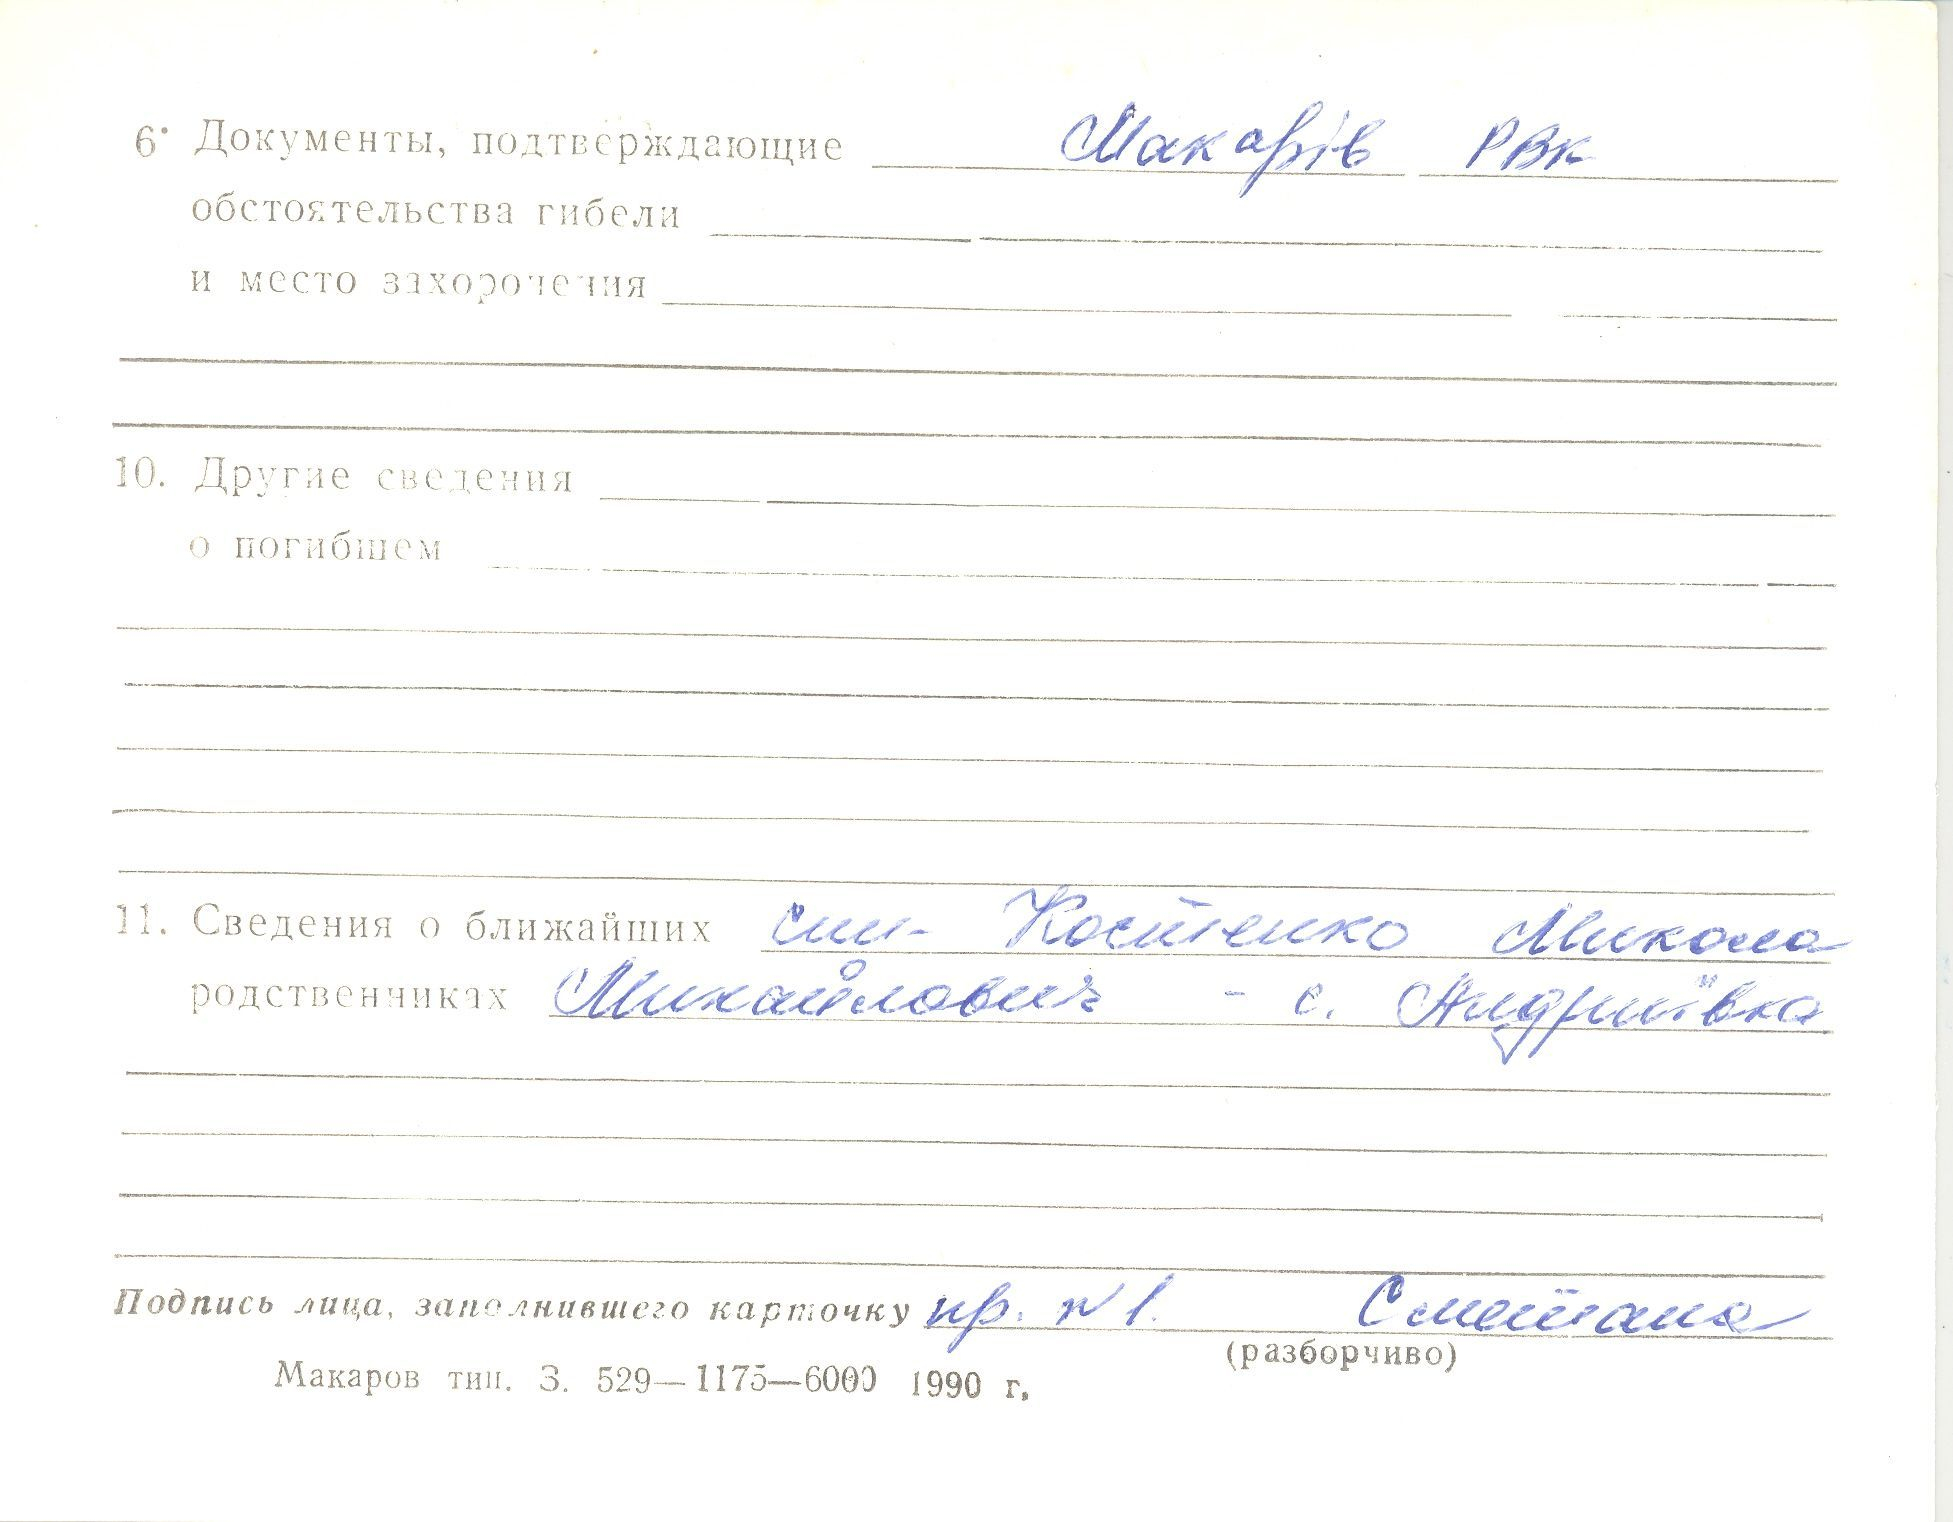 6. Документы, подтверждающие Макарів РВК
обстоятельства гибели
и место захоронения
10. Другие сведения
о погибшем
11. Сведения о ближайших син - Костенко Микола
родственниках Михайлович - с. Андріївка
Подпись лица, заполнившего карточку пр. N 1. Сметана
(разборчиво)
Макаров тип. З. 529—1175—6000 1990 г.